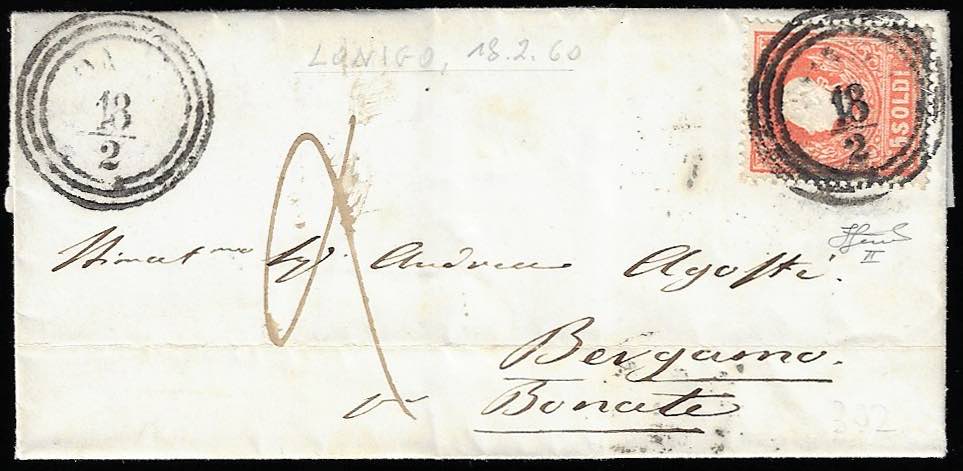 LONIGO, 18.2.60
18
2
18
2
5 SOLDI
Stimat.mo Sig.r Andrea Agosti
II
Bergamo.
Bonate
302